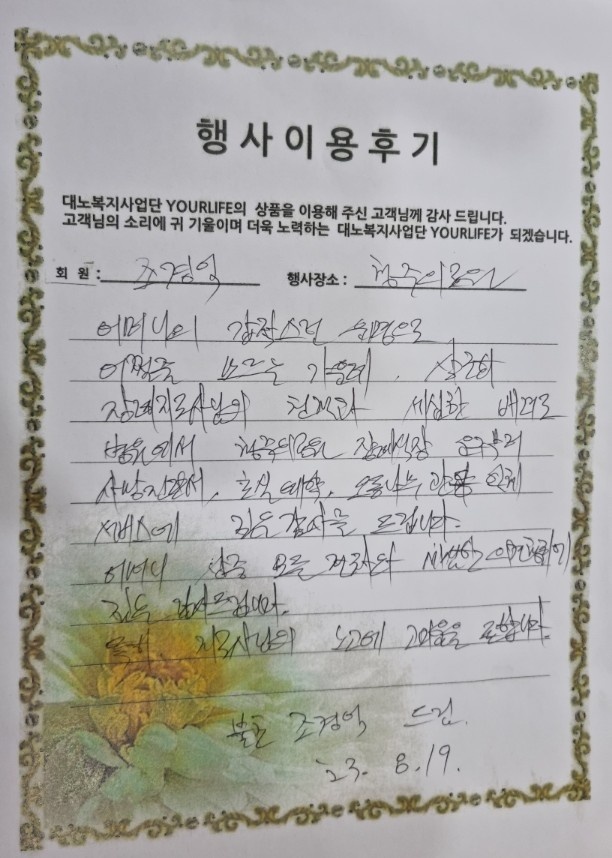 행사이용후기
대노복지사업단 YOURLIFE의 상품을 이용해 주신 고객님께 감사 드립니다.
고객님의 소리에 귀 기울이며 더욱 노력하는 대노복지사업단 YOURLIFE가 되겠습니다.
회 원 : 조경억 행사장소 : 청주의료원
어머니의 갑작스런 운명으로
어쩔줄 모르는 가운데,
장례지도사님의 친절과 세심한 배려로
병원에서 청주의료원 장례식장
사망진단서, 호실 예약, 오동나무 관
서비스에 깊은 감사를 드립니다.
어머니 모든 절차와
깊은 감사드립니다.
지도사님의 노고에 고마움을 표합니다.
불초 조경억 드림.
'23. 8. 19.